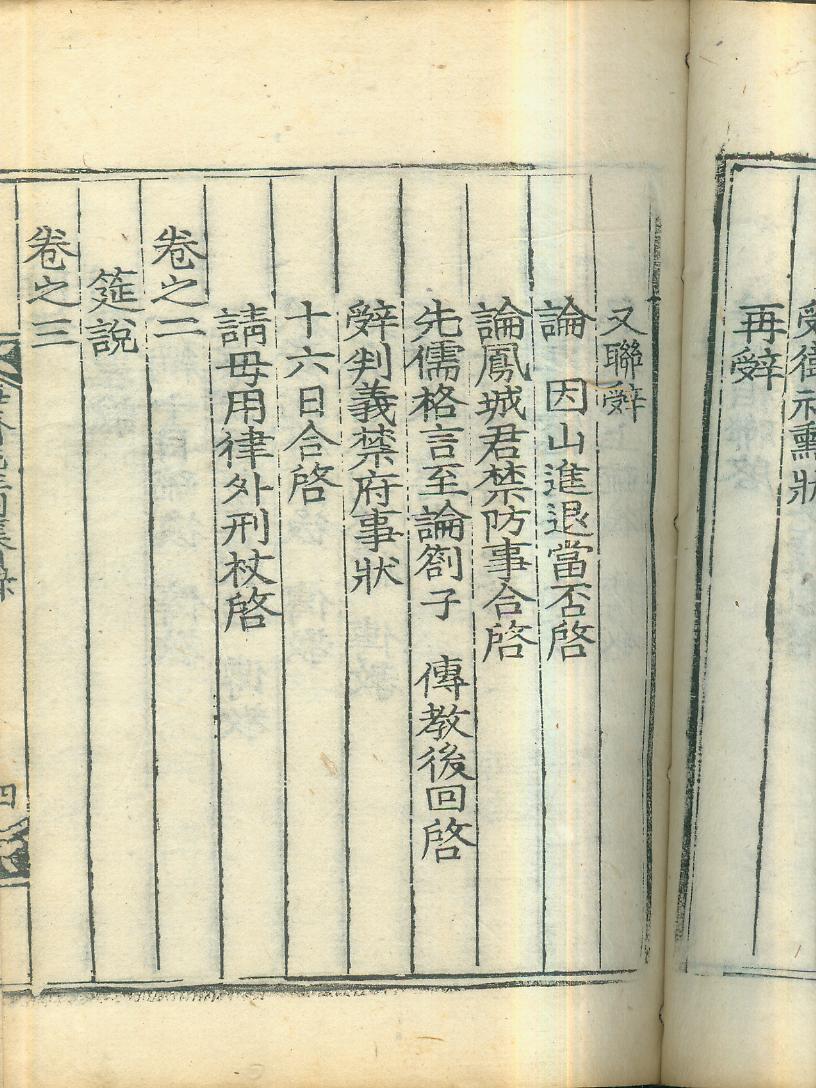 受衛社勳狀
再辭
又聯辭
論 因山進退當否啓
論鳳城君禁防事合啓
先儒格言至論劄子 傳教後回啓
辭判義禁府事狀
十六日合啓
請毋用律外刑杖啓
卷之二
筵說
卷之三
四